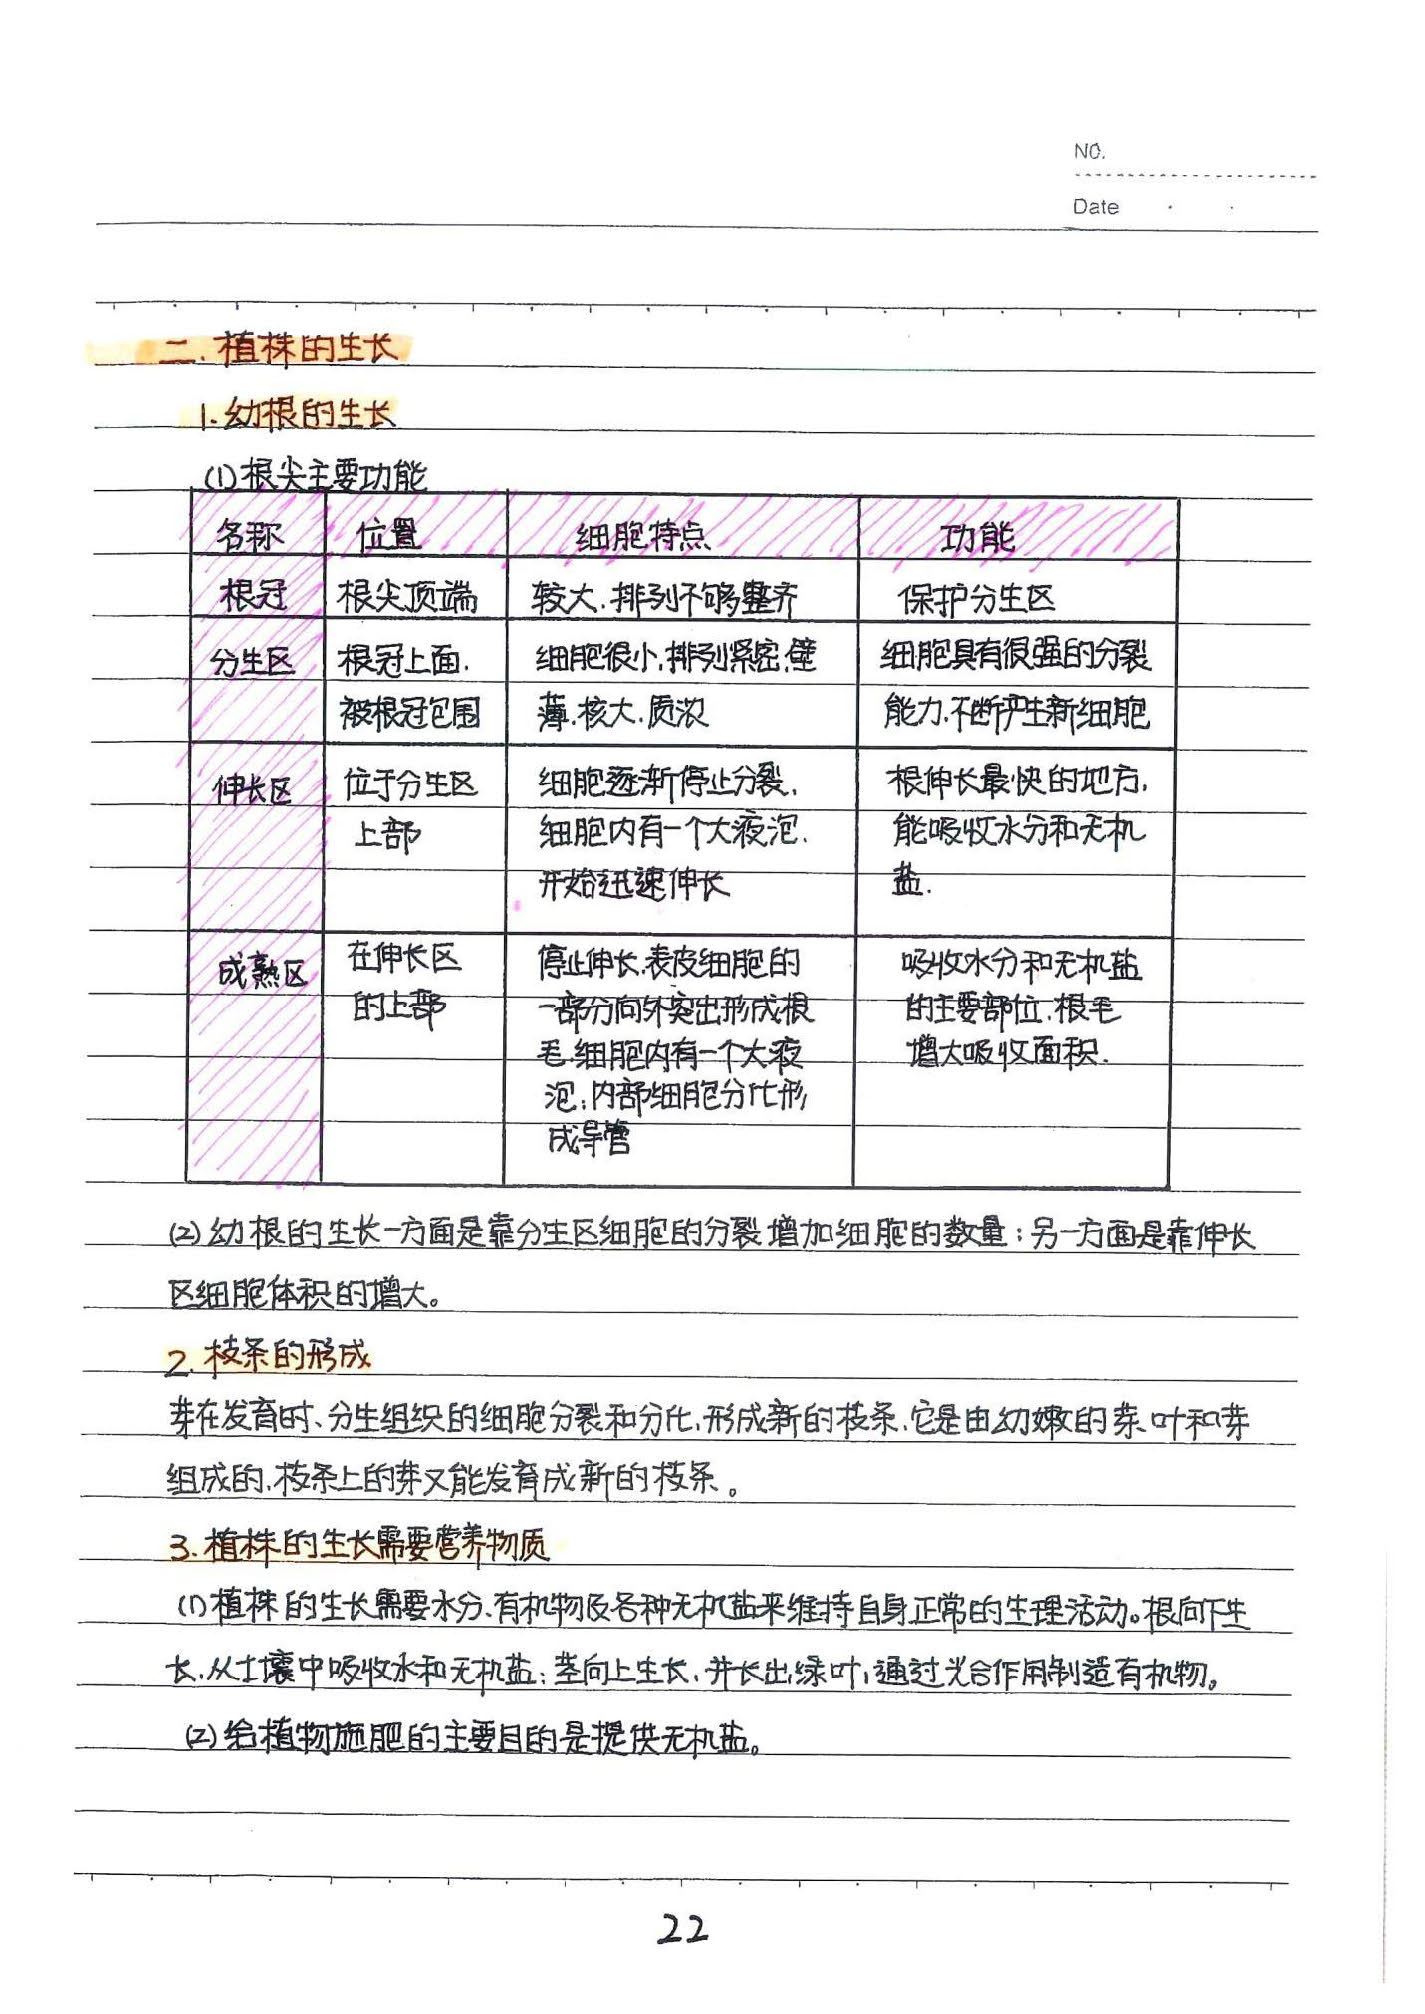 NO.
Date
二.植株的生长
1.幼根的生长
(1)根尖主要功能
名称 位置 细胞特点 功能
根冠 根尖顶端 较大.排列不够整齐 保护分生区
分生区 根冠上面. 细胞很小,排列紧密,壁 细胞具有很强的分裂
被根冠包围 薄.核大.质浓 能力.不断产生新细胞
伸长区 位于分生区 细胞逐渐停止分裂. 根伸长最快的地方.
上部 细胞内有一个大液泡. 能吸收水分和无机
开始迅速伸长 盐.
成熟区 在伸长区 停止伸长.表皮细胞的 吸收水分和无机盐
的上部 一部分向外突出形成根 的主要部位.根毛
毛.细胞内有一个大液 增大吸收面积.
泡;内部细胞分化形
成导管
(2)幼根的生长一方面是靠分生区细胞的分裂增加细胞的数量;另一方面是靠伸长
区细胞体积的增大。
2.枝条的形成
芽在发育时、分生组织的细胞分裂和分化,形成新的枝条.它是由幼嫩的茎、叶和芽
组成的,枝条上的芽又能发育成新的枝条。
3.植株的生长需要营养物质
(1)植株的生长需要水分、有机物及各种无机盐来维持自身正常的生理活动。根向下生
长.从土壤中吸收水和无机盐;茎向上生长.并长出绿叶,通过光合作用制造有机物。
(2)给植物施肥的主要目的是提供无机盐。
22